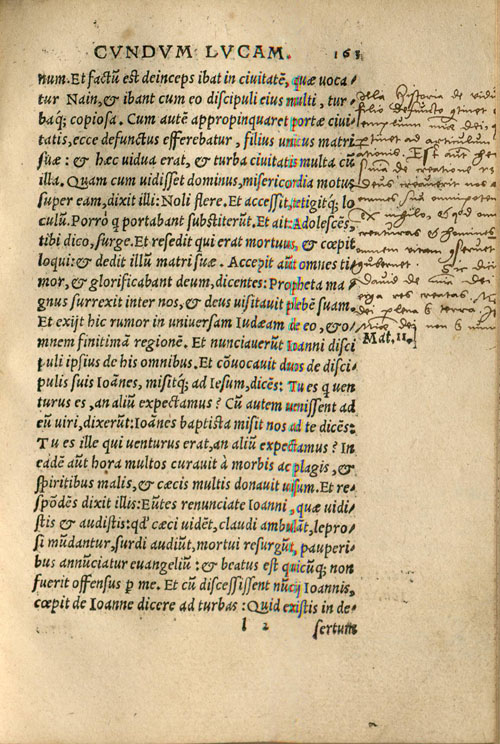 CVNDVM LVCAM. 163
num. Et factū est deinceps ibat in ciuitatē, quæ voca-
tur Nain, & ibant cum eo discipuli eius multi, tur
baq; copiosa. Cum autē appropinquaret portæ ciui
tatis, ecce defunctus efferebatur, filius unicus matri
suæ: & hæc uidua erat, & turba ciuitatis multa cū
illa. Quam cum uidisset dominus, misericordia motus
super eam, dixit illi: Noli flere. Et accessit, tetigitq; lo
culū. Porrò q portabant substiterūt. Et ait: Adolescēs,
tibi dico, surge. Et resedit qui erat mortuus, & cœpit
loqui: & dedit illū matri suæ. Accepit aūt omnes ti-
mor, & glorificabant deum, dicentes: Propheta ma
gnus surrexit inter nos, & deus uisitauit plebē suam.
Et exijt hic rumor in universam Iudæam de eo, & o-
mnem finitimā regionē. Et nunciauerūt Ioanni disci
puli ipsius de his omnibus. Et cōuocauit duos de disci-
pulis suis Ioānes, misitq; ad Iesum, dicēs: Tu es q uen
turus es, an aliū expectamus? Cū autem uenissent ad
eū uiri, dixerūt: Ioānes baptista misit nos ad te dicēs:
Tu es ille qui uenturus erat, an aliū expectamus? In
eadē aūt hora multos curauit à morbis ac plagis, &
spiritibus malis, & cæcis multis donauit uisum. Et re-
spōdēs dixit illis: Eūtes renunciate Ioanni, quæ uidi-
stis & audistis: qd' cæci uidēt, claudi ambulāt, lepro-
si mūdantur, surdi audiūt, mortui resurgūt, pauperi-
bus annūciatur euangeliū: & beatus est quicūq; non
fuerit offensus p me. Et cū discessissent nūcij Ioannis,
cœpit de Ioanne dicere ad turbas: Quid existis in de-
l 2 sertum
Illa historia de vidu
filio defuncto
Est
dei
David de
dei plena terra
dei non
Mat. 11.